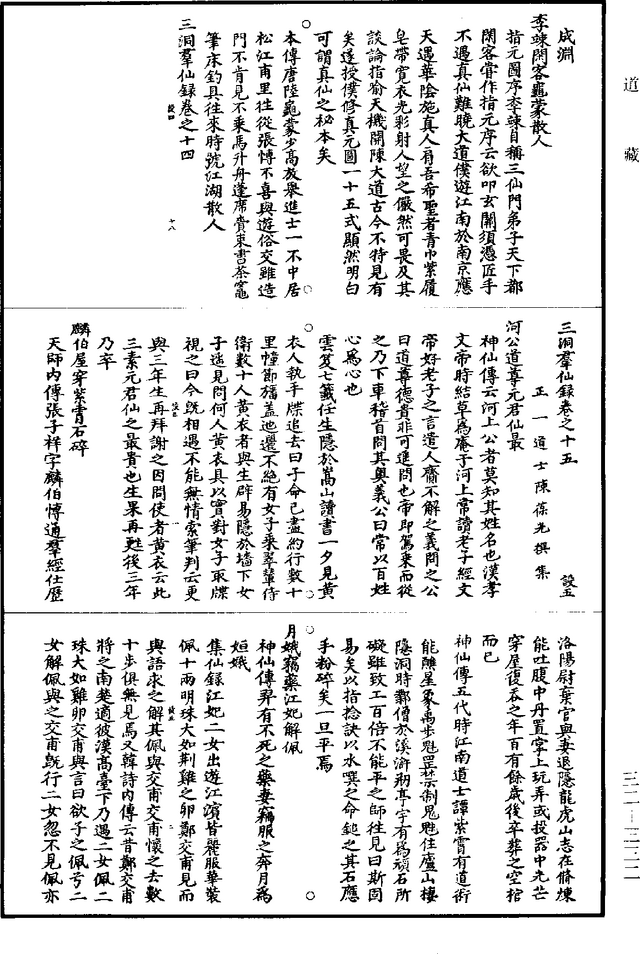 道藏
成淵
李竦閑客龜蒙散人
指元圖序李竦自稱三仙門弟子天下都
閑客嘗作指元序云欲叩玄關須憑匠手
不遇真仙難曉大道僕遊江南於南京應
天遇華陰施真人肩吾希聖者青巾紫履
皂帶寬衣光彩射人望之儼然可畏及其
談論指喻天機開陳大道古今不特見有
矣遂授僕修真元圖一十五式顯然明白
可謂真仙之秘本矣
本傳唐陸龜蒙少高放舉進士一不中居
松江甫里往從張愽不喜與遊俗交雖造
門不肯見不乗馬升舟蓬席賫束書茶竈
筆床釣具往來時號江湖散人
三洞羣仙録卷之十四
設四
十八
三洞羣仙録卷之十五
設五
正一道士陳葆光撰集
河公道尊元君仙最
神仙傳云河上公者莫知其姓名也漢孝
文帝時結草爲庵于河上常讀老子經文
帝好老子之言遣人齎不解之義問之公
曰道尊德貴非可遥問也帝即駕乗而從
之乃下車稽首問其奥義公曰常以百姓
心爲心也
雲笈七籤任生隱於嵩山讀書一夕見黄
衣人執手牒追去曰子命已盡約行數十
里幢節旛蓋迤邐不絶有女子乘翠輦侍
衛數十人黄衣者與生辟易隱於墻下女
子遥見問何人黄衣具以實對女子取牒
視之曰今既相遇不能無情索筆判云更
與三年生再拜謝之因問使者黄衣云此
三素元君仙之最貴也生果再甦後三年
乃卒
麟伯屋穿紫霄石碎
天師内傳張子祥字麟伯愽通羣經仕歴
洛陽尉棄官與妻退隱龍虎山志在脩煉
能吐腹中丹置掌上玩弄或投器中光芒
穿屋復吞之年百有餘歳後卒葬之空棺
而已
神仙傳五代時江南道士譚紫霄有道術
能醮星象禹步魁罡禁制鬼魅住廬山棲
隱洞時鄰僧於溪滸剏亭宇有爲頑石所
礙雖致工百倍不能平之師往見曰斯固
易矣以指捻訣以水噀之命鎚之其石應
手粉碎矣一旦平焉
月娥竊藥江妃解佩
神仙傳羿有不死之藥妻竊服之奔月爲
姮娥
集仙録江妃二女出遊江濱皆麗服華裝
佩十兩明珠大如荆雞之卵鄭交甫見而
與語求之解其佩與交甫交甫懷之去數
十步俱無見焉又韓詩内傳云昔鄭交甫
將之南楚適彼漢髙臺下乃遇二女佩二
珠大如雞卵交甫與言曰欲子之佩号二
女解佩與之交甫既行二女忽不見佩亦
三二—三二二